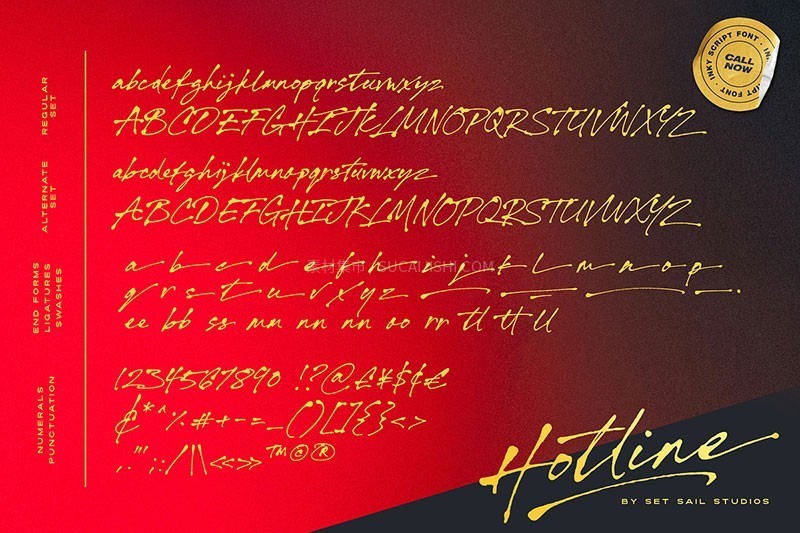 REGULAR
SET
abcdefghijklmnopqrstuvwxyz
ABCDEFGHIJKLMNOPQRSTUVWXYZ
ALTERNATE
SET
abcdefghijklmnopqrstuvwxyz
ABCDEFGHIJKLMNOPQRSTUVWXYZ
END FORMS
LIGATURES
SWASHES
a b c d e f h i j k l m n o p
q r s t u v x y z
ee bb ss mm nn nn oo rr tl tt ll
素材集市 SUCAIJISHI.COM
NUMERALS
PUNCTUATION
1234567890 !?@£¥$¢€
¢*^%.#+-=_()[]{}<>
.,"';:/|\«»™©®
INKY SCRIPT FONT · INKY SCRIPT FONT ·
CALL
NOW
Hotline
BY SET SAIL STUDIOS